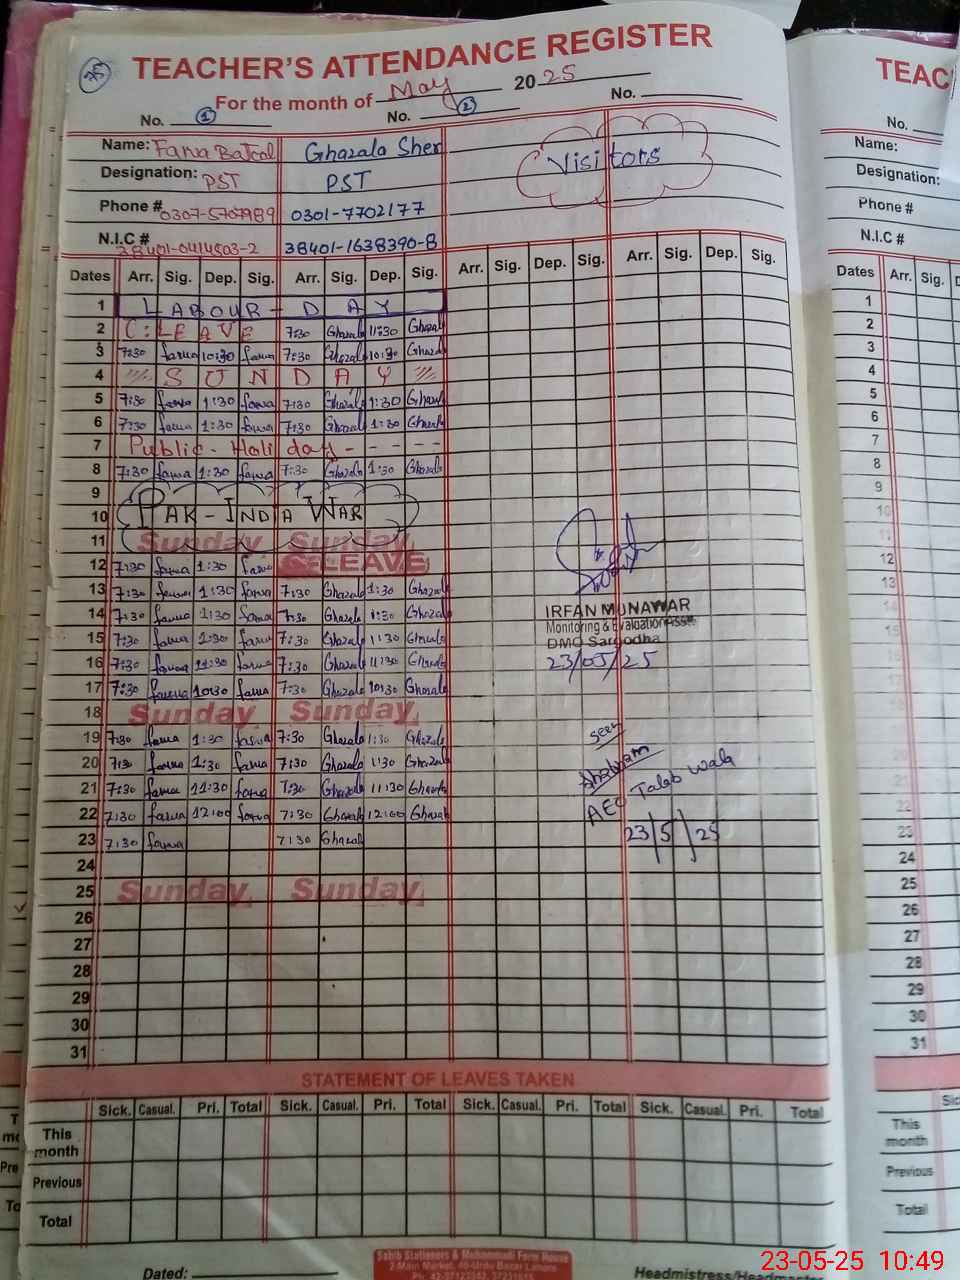 25
TEACHER'S ATTENDANCE REGISTER
For the month of May 2025
No. 1 No. 2 No.
Name: Farwa Batool Ghazala Sher Visitors
Designation: PST PST
Phone # 0307-5707989 0301-7702177
N.I.C # 38401-0414503-2 38401-1638390-8
Dates Arr. Sig. Dep. Sig. Arr. Sig. Dep. Sig. Arr. Sig. Dep. Sig. Arr. Sig. Dep. Sig.
1 LABOUR-DAY
2 C:LEAVE 7:30 Ghazala 11:30 Ghazala
3 7:30 farwa 10:30 farwa 7:30 Ghazala 10:30 Ghazala
4 SUNDAY
5 7:30 farwa 1:30 farwa 7:30 Ghazala 1:30 Ghazala
6 7:30 farwa 1:30 farwa 7:30 Ghazala 1:30 Ghazala
7 Public - Holiday - - - - -
8 7:30 farwa 1:30 farwa 7:30 Ghazala 1:30 Ghazala
9
10 PAK-INDIA WAR
11 Sunday Sunday
12 7:30 farwa 1:30 farwa LEAVE
13 7:30 farwa 1:30 farwa 7:30 Ghazala 1:30 Ghazala
14 7:30 farwa 1:30 farwa 7:30 Ghazala 1:30 Ghazala
15 7:30 farwa 1:30 farwa 7:30 Ghazala 1:30 Ghazala
16 7:30 farwa 11:30 farwa 7:30 Ghazala 11:30 Ghazala
17 7:30 farwa 10:30 farwa 7:30 Ghazala 10:30 Ghazala
18 Sunday Sunday
19 7:30 farwa 1:30 farwa 7:30 Ghazala 1:30 Ghazala
20 7:30 farwa 1:30 farwa 7:30 Ghazala 1:30 Ghazala
21 7:30 farwa 11:30 farwa 7:30 Ghazala 11:30 Ghazala
22 7:30 farwa 12:00 farwa 7:30 Ghazala 12:00 Ghazala
23 7:30 farwa 7:30 Ghazala
24
25 Sunday Sunday
26
27
28
29
30
31
IRFAN MUNAWAR
Monitoring & Evaluation Asstt.
DMO Sargodha
23/05/25
seen
Shabnam
AEO Talab wala
23/5/25
STATEMENT OF LEAVES TAKEN
Sick. Casual. Pri. Total Sick. Casual. Pri. Total Sick. Casual. Pri. Total Sick. Casual. Pri. Total
This month
Previous
Total
Sahib Stationers & Mohammadi Form House
2-Main Market, 40-Urdu Bazar Lahore
Dated: Headmistress/Headmaster
TEAC
No.
Name:
Designation:
Phone #
N.I.C #
Dates Arr. Sig.
1
2
3
4
5
6
7
8
9
10
11
12
13
14
15
16
17
18
19
20
21
22
23
24
25
26
27
28
29
30
31
This month
Previous
Total
23-05-25 10:49